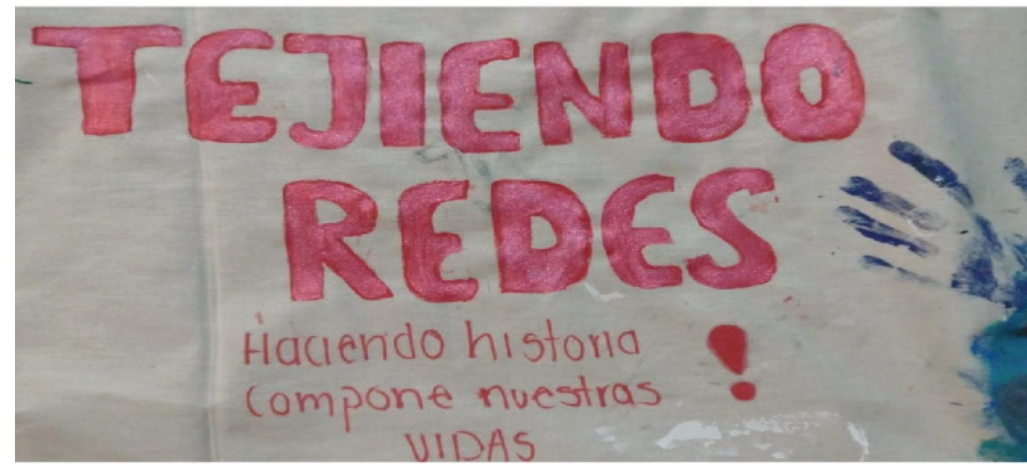 TEJIENDO
REDES
Haciendo historia
compone nuestras
VIDAS !